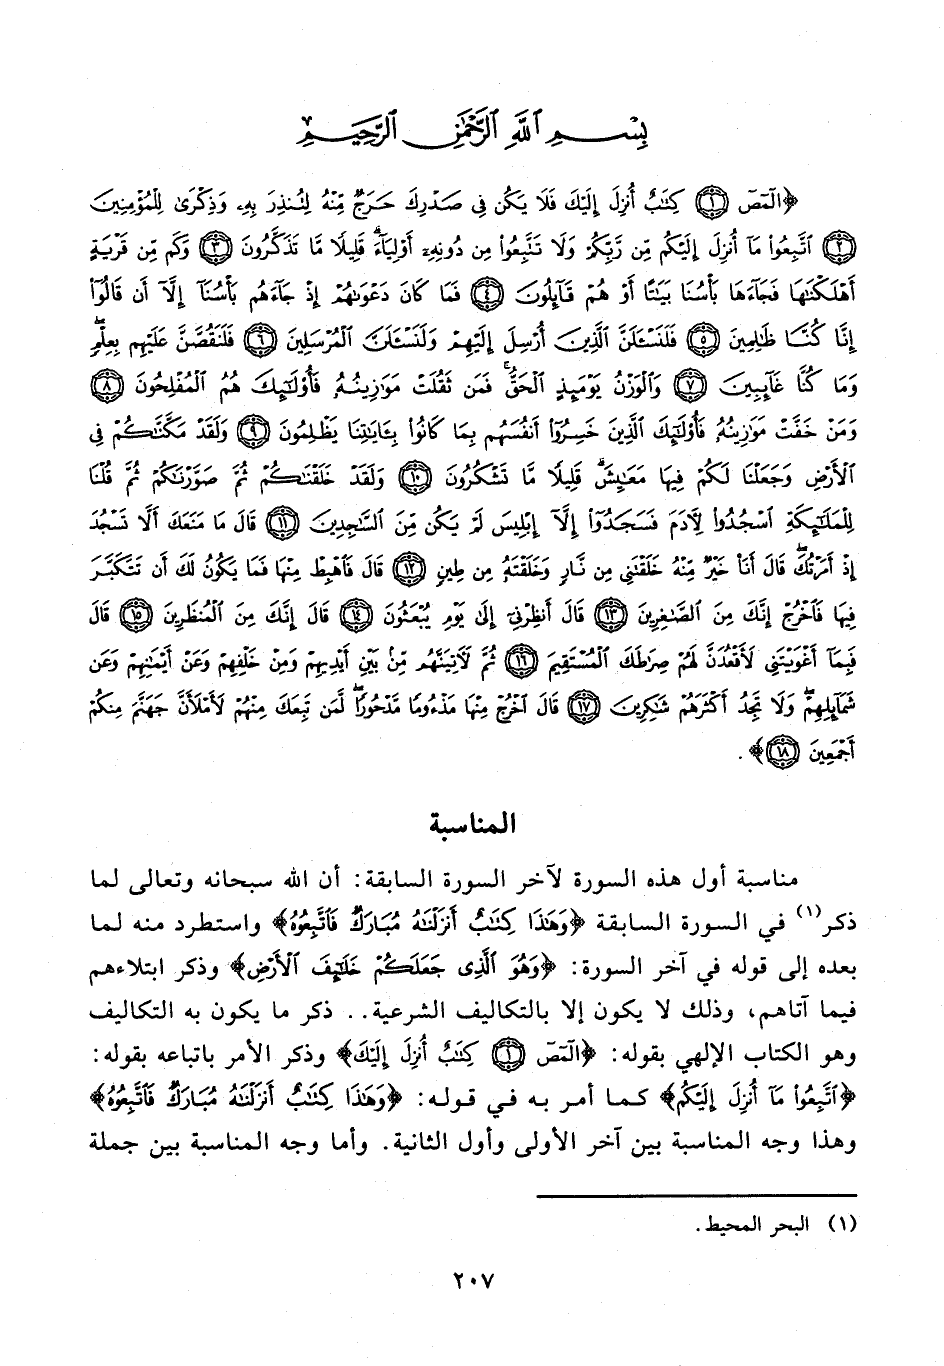 بِسْمِ ٱللَّهِ ٱلرَّحْمَٰنِ ٱلرَّحِيمِ
﴿الٓمٓصٓ ١ كِتَٰبٌ أُنزِلَ إِلَيْكَ فَلَا يَكُن فِى صَدْرِكَ حَرَجٌ مِّنْهُ لِتُنذِرَ بِهِۦ وَذِكْرَىٰ لِلْمُؤْمِنِينَ
٢ ٱتَّبِعُوا۟ مَآ أُنزِلَ إِلَيْكُم مِّن رَّبِّكُمْ وَلَا تَتَّبِعُوا۟ مِن دُونِهِۦٓ أَوْلِيَآءَ ۗ قَلِيلًا مَّا تَذَكَّرُونَ ٣ وَكَم مِّن قَرْيَةٍ
أَهْلَكْنَٰهَا فَجَآءَهَا بَأْسُنَا بَيَٰتًا أَوْ هُمْ قَآئِلُونَ ٤ فَمَا كَانَ دَعْوَىٰهُمْ إِذْ جَآءَهُم بَأْسُنَآ إِلَّآ أَن قَالُوٓا۟
إِنَّا كُنَّا ظَٰلِمِينَ ٥ فَلَنَسْـَٔلَنَّ ٱلَّذِينَ أُرْسِلَ إِلَيْهِمْ وَلَنَسْـَٔلَنَّ ٱلْمُرْسَلِينَ ٦ فَلَنَقُصَّنَّ عَلَيْهِم بِعِلْمٍ ۖ
وَمَا كُنَّا غَآئِبِينَ ٧ وَٱلْوَزْنُ يَوْمَئِذٍ ٱلْحَقُّ ۚ فَمَن ثَقُلَتْ مَوَٰزِينُهُۥ فَأُو۟لَٰٓئِكَ هُمُ ٱلْمُفْلِحُونَ ٨
وَمَنْ خَفَّتْ مَوَٰزِينُهُۥ فَأُو۟لَٰٓئِكَ ٱلَّذِينَ خَسِرُوٓا۟ أَنفُسَهُم بِمَا كَانُوا۟ بِـَٔايَٰتِنَا يَظْلِمُونَ ٩ وَلَقَدْ مَكَّنَّٰكُمْ فِى
ٱلْأَرْضِ وَجَعَلْنَا لَكُمْ فِيهَا مَعَٰيِشَ ۗ قَلِيلًا مَّا تَشْكُرُونَ ١٠ وَلَقَدْ خَلَقْنَٰكُمْ ثُمَّ صَوَّرْنَٰكُمْ ثُمَّ قُلْنَا
لِلْمَلَٰٓئِكَةِ ٱسْجُدُوا۟ لِـَٔادَمَ فَسَجَدُوٓا۟ إِلَّآ إِبْلِيسَ لَمْ يَكُن مِّنَ ٱلسَّٰجِدِينَ ١١ قَالَ مَا مَنَعَكَ أَلَّا تَسْجُدَ
إِذْ أَمَرْتُكَ ۖ قَالَ أَنَا۠ خَيْرٌ مِّنْهُ خَلَقْتَنِى مِن نَّارٍ وَخَلَقْتَهُۥ مِن طِينٍ ١٢ قَالَ فَٱهْبِطْ مِنْهَا فَمَا يَكُونُ لَكَ أَن تَتَكَبَّرَ
فِيهَا فَٱخْرُجْ إِنَّكَ مِنَ ٱلصَّٰغِرِينَ ١٣ قَالَ أَنظِرْنِىٓ إِلَىٰ يَوْمِ يُبْعَثُونَ ١٤ قَالَ إِنَّكَ مِنَ ٱلْمُنظَرِينَ ١٥ قَالَ
فَبِمَآ أَغْوَيْتَنِى لَأَقْعُدَنَّ لَهُمْ صِرَٰطَكَ ٱلْمُسْتَقِيمَ ١٦ ثُمَّ لَـَٔاتِيَنَّهُم مِّنۢ بَيْنِ أَيْدِيهِمْ وَمِنْ خَلْفِهِمْ وَعَنْ أَيْمَٰنِهِمْ وَعَن
شَمَآئِلِهِمْ ۖ وَلَا تَجِدُ أَكْثَرَهُمْ شَٰكِرِينَ ١٧ قَالَ ٱخْرُجْ مِنْهَا مَذْءُومًا مَّدْحُورًا ۖ لَّمَن تَبِعَكَ مِنْهُمْ لَأَمْلَأَنَّ جَهَنَّمَ مِنكُمْ
أَجْمَعِينَ ١٨﴾ .
المناسبة
مناسبة أول هذه السورة لآخر السورة السابقة: أن الله سبحانه وتعالى لما
ذكر(١) في السورة السابقة ﴿وَهَٰذَا كِتَٰبٌ أَنزَلْنَٰهُ مُبَارَكٌ فَٱتَّبِعُوهُ﴾ واستطرد منه لما
بعده إلى قوله في آخر السورة: ﴿وَهُوَ ٱلَّذِى جَعَلَكُمْ خَلَٰٓئِفَ ٱلْأَرْضِ﴾ وذكر ابتلاءهم
فيما آتاهم، وذلك لا يكون إلا بالتكاليف الشرعية.. ذكر ما يكون به التكاليف
وهو الكتاب الإلهي بقوله: ﴿الٓمٓصٓ ١ كِتَٰبٌ أُنزِلَ إِلَيْكَ﴾ وذكر الأمر باتباعه بقوله:
﴿ٱتَّبِعُوا۟ مَآ أُنزِلَ إِلَيْكُم﴾ كما أمر به في قوله: ﴿وَهَٰذَا كِتَٰبٌ أَنزَلْنَٰهُ مُبَارَكٌ فَٱتَّبِعُوهُ﴾
وهذا وجه المناسبة بين آخر الأولى وأول الثانية. وأما وجه المناسبة بين جملة
(١) البحر المحيط.
٢٠٧